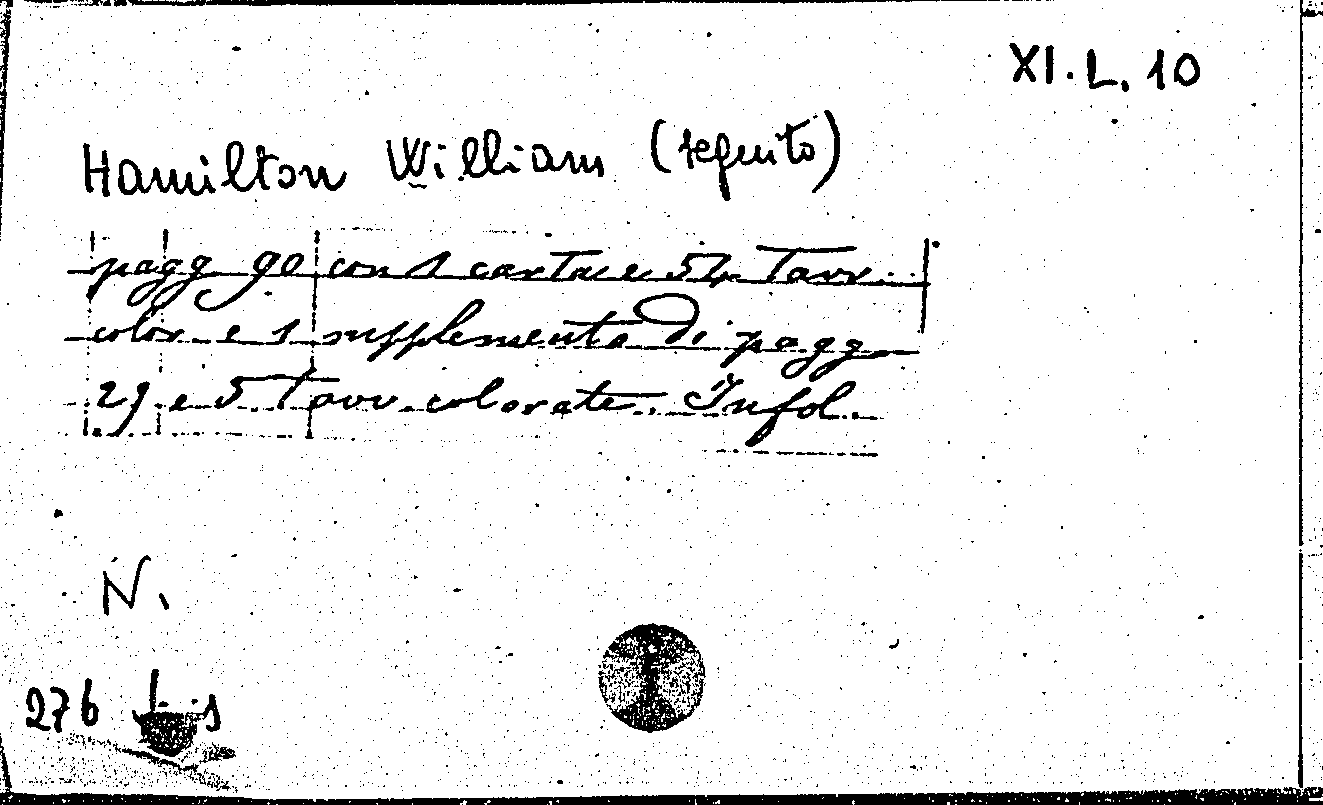 XI. L. 10
Hamilton William (seguito)
pagg. 90 con 1 carta e 54 Tavv.
color. e 1 supplemento di pagg.
29 e 5 Tavv. colorate. Infol.
N.
276 bis